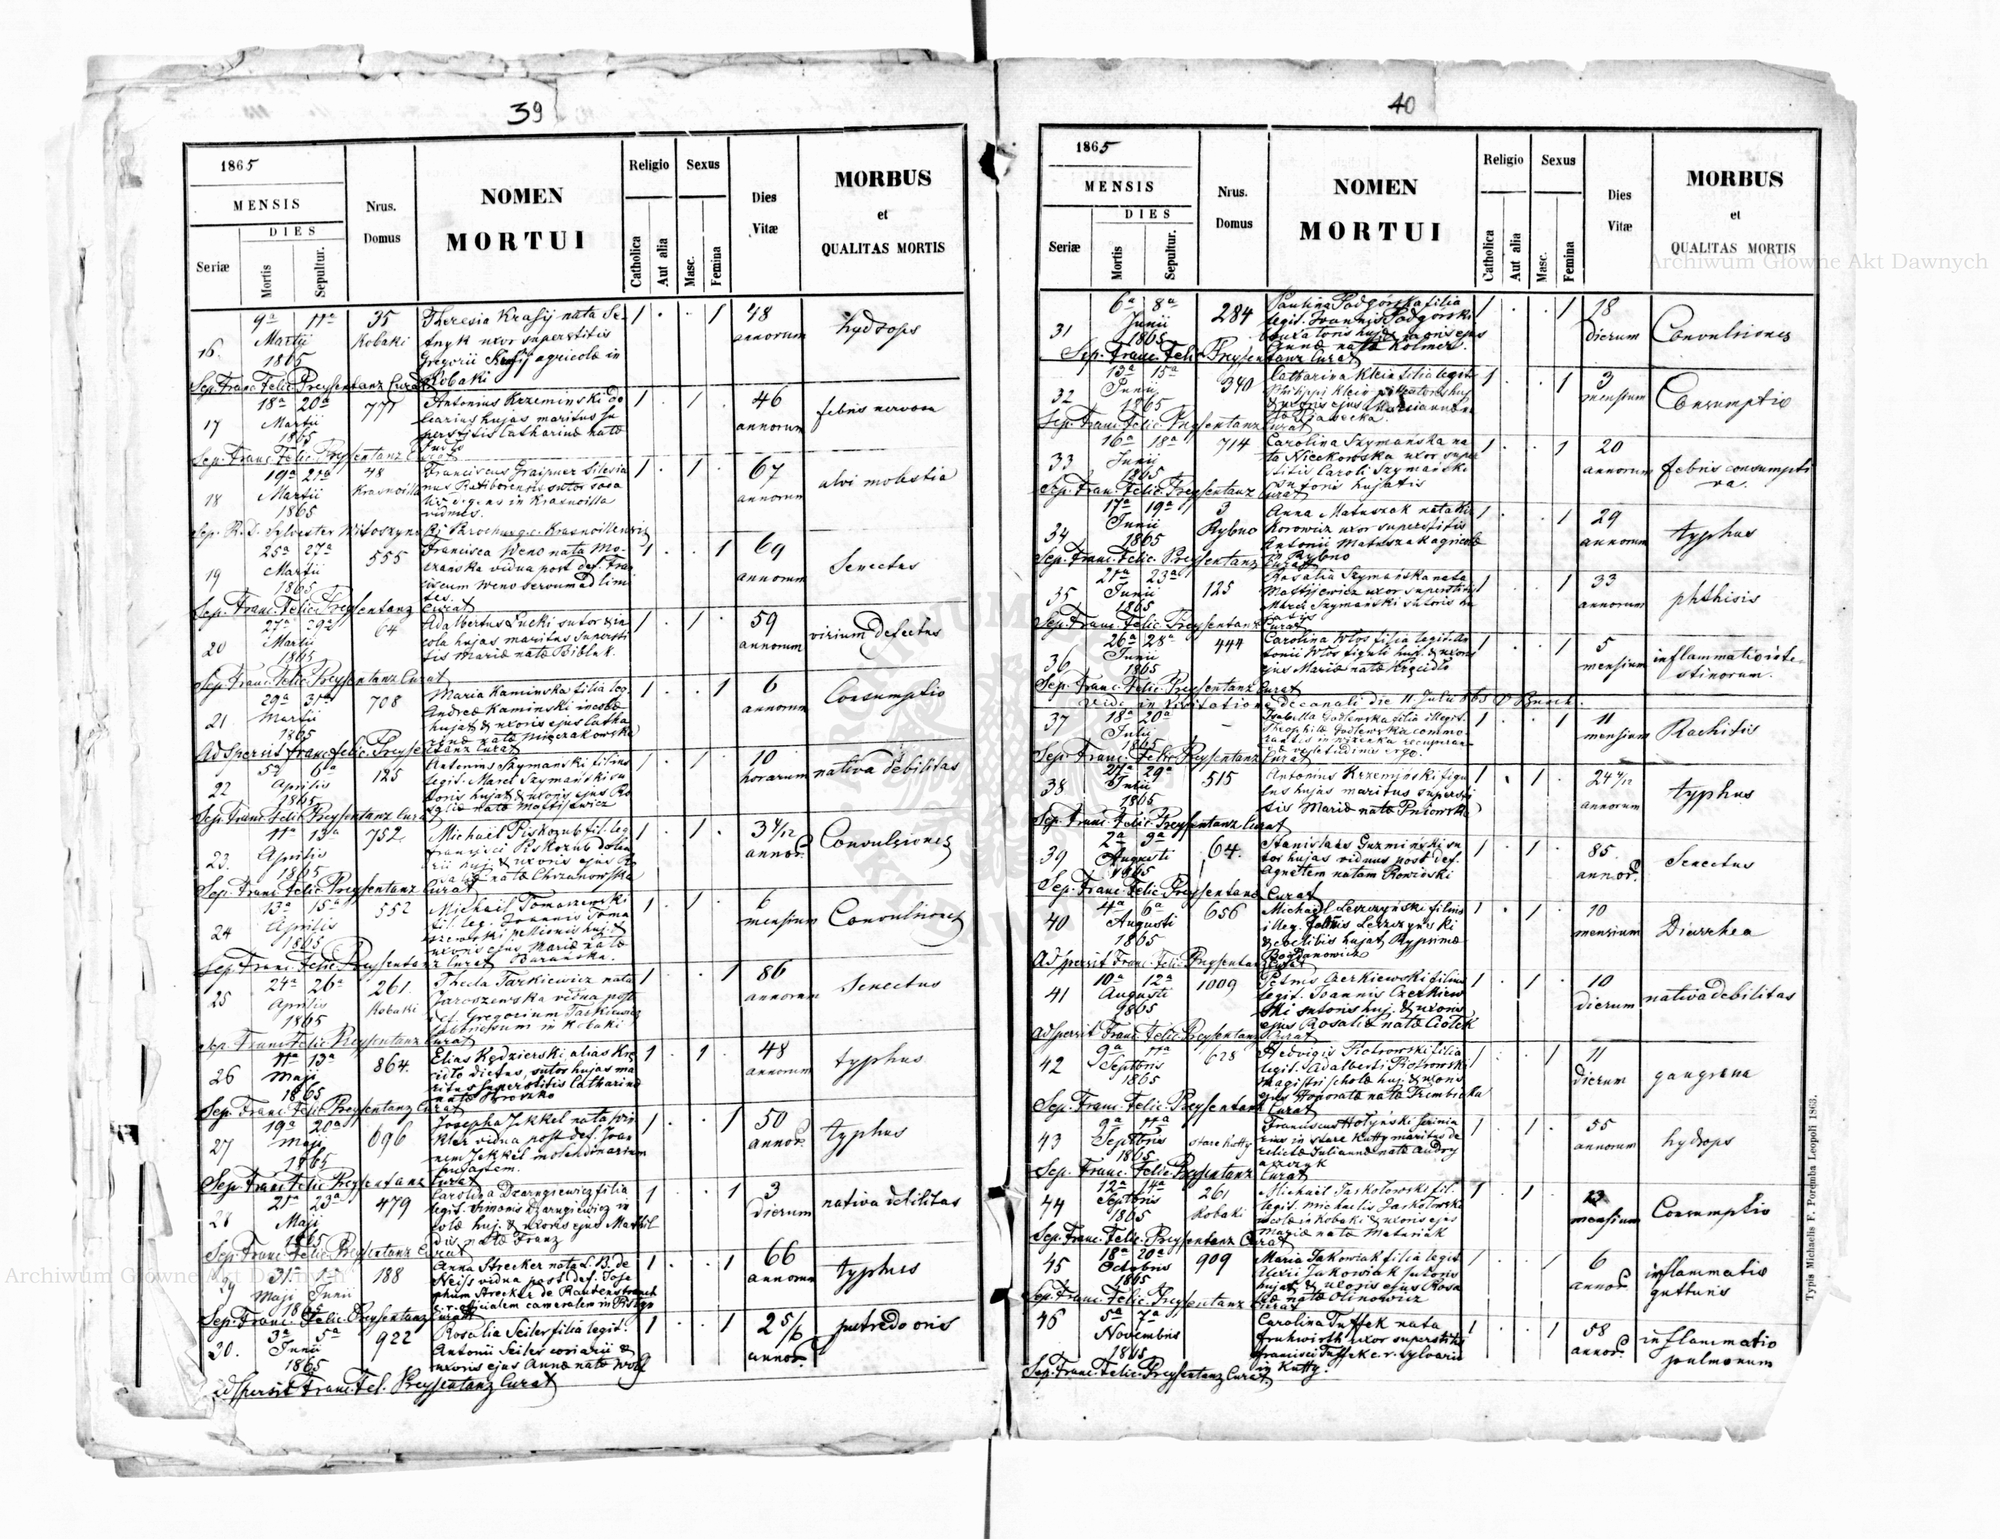 39
1865
MENSIS
DIES
Seriæ
Mortis
Sepultur.
Nrus.
Domus
NOMEN
MORTUI
Religio
Catholica
Aut alia
Sexus
Masc.
Femina
Dies
Vitæ
MORBUS
et
QUALITAS MORTIS
16. 9a 11a Martii 1865
35 Kobaki
Theresia Krasij nata
uxor superstitis
Gregorii agricolæ in
Kobaki
1 . . 1
48 annorum
hydrops
Sep. Franc. Felic. Preysentanz Curat
17 18a 20a Martii 1865
777
Antonius Krzeminski do
liarius hujas maritus su
perstitis Catharinæ natæ
1 . 1 .
46 annorum
febris nervosa
Sep. Franc. Felic. Preysentanz Curat
18 19a 21a Martii 1865
48
Franciscus Silesia
nus Ratiborensis sutor
in Krasnoilla
viduus.
1 . 1 .
67 annorum
alvi molestia
Sep. R. D. Sylvester
19 25a 27a Martii 1865
555
Francisca Weno nata Mo-
vidua post def. Fran
ciscum Weno servum ad limi
tes.
1 . . 1
69 annorum
Senectus
Sep. Franc. Felic. Preysentanz Curat
20 27a 29a Martii 1865
64
Adalbertus Lucki sutor & in
cola hujas maritus supersti
tis Mariæ natæ
1 . 1 .
59 annorum
virium defectus
Sep. Franc. Felic. Preysentanz Curat
21 29a 31a Martii 1865
708
Maria Kaminska filia leg.
Andreæ Kaminski incolæ
hujat. & uxoris ejus Catha
rinæ natæ
1 . . 1
6 annorum
Consumptio
Adspersit Franc. Felic. Preysentanz Curat
22 5a 6a Aprilis 1865
125
Antonius Szymański filius
legit. Marci Szymański su
toris hujat. & uxoris ejus Ro
saliæ natæ
1 . 1 .
10 horarum
nativa debilitas
Sep. Franc. Felic. Preysentanz Curat
23. 11a 13a Aprilis 1865
752
Michael Piskozub fil. leg.
Francisci Piskozub dolia
rii huj. & uxoris ejus
natæ Chrzanowska
1 . 1 .
3 annor.
Convulsiones
Sep. Franc. Felic. Preysentanz Curat
24 13a 15a Aprilis 1865
552
Michael Tomaszewski
fil. legi. Joannis Toma
szewski pellionis huj. &
uxoris ejus Mariæ natæ
Barańska.
1 . 1 .
6 mensium
Convulsiones
Sep. Franc. Felic. Preysentanz Curat
25 24a 26a Aprilis 1865
261. Kobaki
Thecla Tarkiewicz nata
Jaroszewska vidua post
def. Gregorium Tarkiewicz
in Kobaki
1 . . 1
86 annorum
Senectus
Sep. Franc. Felic. Preysentanz Curat
26 11a 13a Maji 1865
864.
Elias Kędzierski, alias
dictus, sutor hujas ma
ritus superstitis Catharinæ
natæ
1 . 1 .
48 annorum
typhus
Sep. Franc. Felic. Preysentanz Curat
27 19a 20a Maji 1865
696
Josepha Jekkel nata
vidua post def. Joan
nem Jekkel molendinarium
hujatem.
1 . . 1
50 annor.
typhus
Sep. Franc. Felic. Preysentanz Curat
28 21a 23a Maji 1865
479
Carolina Dzarugiewicz filia
legit. Simonis Dzarugiewicz in
colæ huj. & uxoris ejus
natæ Franz
1 . . 1
3 dierum
nativa debilitas
Sep. Franc. Felic. Preysentanz Curat
29 31a 1a Maji Junii 1865
188
Anna Strecker nata L. B. de
Neiss vidua post def. Jose
phum Strecker de Rautenstrauch
c. r. officialem cameralem in
1 . . 1
66 annorum
typhus
Sep. Franc. Felic. Preysentanz Curat
30. 3a 5a Junii 1865
922
Rosalia Seiler filia legit.
Antonii Seiler coriarii &
uxoris ejus Annæ natæ
1 . . 1
2 5/6 annor.
putredo oris
Adspersit Franc. Fel. Preysentanz Curat
40
1865
MENSIS
DIES
Seriæ
Mortis
Sepultur.
Nrus.
Domus
NOMEN
MORTUI
Religio
Catholica
Aut alia
Sexus
Masc.
Femina
Dies
Vitæ
MORBUS
et
QUALITAS MORTIS
31 6a 8a Junii 1865
284
Paulina Podgórska filia
legit. Joannis Podgórski
huj. & uxoris ejus
Annæ natæ Kolmer.
1 . . 1
18 dierum
Convulsiones
Sep. Franc. Felic. Preysentanz Curat
32 13a 15a Junii 1865
340
Catharina Klein filia legit.
Philippi Klein huj.
& uxoris ejus Mariannæ na
tæ
1 . . 1
3 mensium
Consumptio
Sep. Franc. Felic. Preysentanz Curat
33 16a 18a Junii 1865
714
Carolina Szymańska na
ta Nieckowska uxor super
stitis Caroli Szymański
sutoris hujatis
1 . . 1
20 annorum
febris consumpti
va.
Sep. Franc. Felic. Preysentanz Curat
34 17a 19a Junii 1865
3 Rybno
Anna Matuszak nata
uxor superstitis
Antonii Matuszak agricolæ
in Rybno
1 . . 1
29 annorum
typhus
Sep. Franc. Felic. Preysentanz Curat
35 21a 23a Junii 1865
125
Rosalia Szymańska nata
uxor superstitis
Marci Szymański sutoris hu
jatis
1 . . 1
33 annorum
phthisis
Sep. Franc. Felic. Preysentanz Curat
36 26a 28a Junii 1865
444
Carolina Włos filia legit. An
tonii Włos figuli huj. & uxoris
ejus Mariæ natæ
1 . . 1
5 mensium
inflammatio inte-
stinorum.
Sep. Franc. Felic. Preysentanz Curat
Vidi in Visitatione decanali die 11 Julii 865
37 18a 20a Julii 1865
—
Isabella Godlewska filia illegit.
Theophilæ Godlewska commo
rantis in
valetudinis ergo.
1 . . 1
11 mensium
Rachitis
Sep. Franc. Felic. Preysentanz Curat
38 27a 29a Julii 1865
515
Antonius Krzemiński figu
lus hujas maritus supersti
tis Mariæ natæ Pniowska
1 . 1 .
24 annorum
typhus
Sep. Franc. Felic. Preysentanz Curat
39 2a Augusti 1865
64.
Stanislaus Guzmiński su
tor hujas viduus post def.
Agnetem natam
1 . 1 .
85. annor.
Senectus
Sep. Franc. Felic. Preysentanz Curat
40 4a 6a Augusti 1865
656
Michael Leszczyński filius
illeg. Leszczyński
& cælibis hujat.
Bogdanowicz
1 . 1 .
10 mensium
Diarrhea
Adspersit Franc. Felic. Preysentanz Curat
41 10a 12a Augusti 1865
1009
Petrus Czerkiewski filius
legit. Joannis Czerkiew
ski sutoris huj. & uxoris
ejus Rosaliæ natæ Ciołek
1 . 1 .
10 dierum
nativa debilitas
Adspersit Franc. Felic. Preysentanz Curat
42 9a 11a Septbris 1865
628
Hedvigis Piotrowski filia
legit. Adalberti Piotrowski
magistri scholæ huj. & uxoris
ejus Honoratæ natæ Trembicka
1 . . 1
11 dierum
gangrena
Sep. Franc. Felic. Preysentanz Curat
43 9a 11a Septbris 1865
stare Kutty
Franciscus Hołyński
in stare Kutty maritus de
relictæ Juliannæ natæ Andry
aszczyk
1 . 1 .
55 annorum
hydrops
Sep. Franc. Felic. Preysentanz Curat
44 12a 14a Septbris 1865
261 Kobaki
Michael Jaskołowski fil.
legit. Michaelis Jaskołowski
incolæ in Kobaki & uxoris ejus
Mariæ natæ Matusiak
1 . 1 .
mensium
Consumptio
Sep. Franc. Felic. Preysentanz Curat
45 18a 20a Octobris 1865
909
Maria Jakowiak filia legit.
Alexii Jakowiak sutoris
hujat. & uxoris ejus Rosa
liæ natæ Olinowicz
1 . . 1
6 annor.
inflammatio
gutturis
Sep. Franc. Felic. Preysentanz Curat
46 5a 7a Novembris 1865
Carolina Tuffek nata
Fruhwirth uxor superstitis
Francisci Tuffek c. r. sylvarii
in Kutty.
1 . . 1
58 annor.
inflammatio
pulmonum
Sep. Franc. Felic. Preysentanz Curat.
Typis Michaelis F. Poremba Leopoli 1863.
Archiwum Główne Akt Dawnych
Archiwum Główne Akt Dawnych